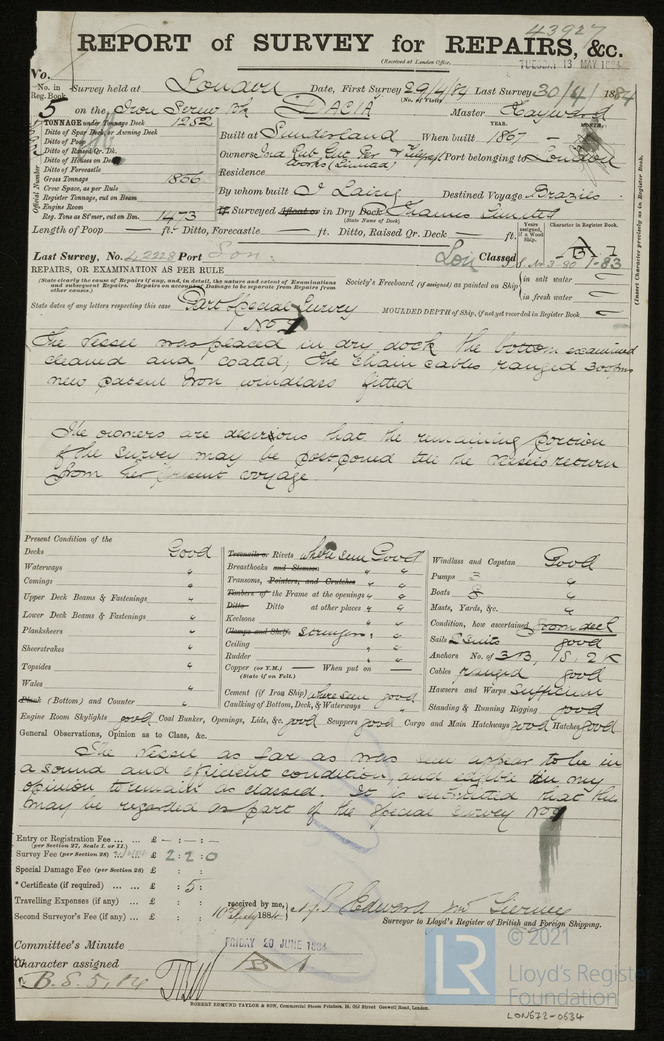 43927
REPORT of SURVEY for REPAIRS, &c.
(Received at London Office,
TUESDAY 13 MAY 1884
No.
No. in Reg. Book. Survey held at London Date, First Survey 29/4/84 Last Survey 30/4/1884
(No. of Visits)
5 on the Iron Screw DACIA Master Hayward
TONNAGE under Tonnage Deck 1252
Ditto of Spar Deck or Awning Deck
Ditto of Poop
Ditto of Raised Qr. Dk.
Ditto of Houses on Deck
Ditto of Forecastle
Gross Tonnage 1856
Crew Space, as per Rule
Register Tonnage, cut on Beam
Engine Room
Reg. Tons as St'mer, cut on Bm. 1473
Official Number
YEAR. MONTH.
Built at Sunderland When built 1867 —
Owners Ind Rub. Gut. Per & Telegraph Works (Limited) Port belonging to London
Residence
By whom built J Laing Destined Voyage Brazils
If Surveyed Afloat or in Dry Dock Thames
(State Name of Dock)
Years assigned, if a Wood Ship. Character in Register Book.
(Insert Character precisely as in Register Book.
Length of Poop — ft. Ditto, Forecastle — ft. Ditto, Raised Qr. Deck — ft.
Last Survey, No. 42228 Port Lon. Lon Classed
REPAIRS, OR EXAMINATION AS PER RULE
(State clearly the cause of Repairs if any, and, in detail, the nature and extent of Examinations and subsequent Repairs. Repairs on account of Damage to be separate from Repairs from other causes.)
Society's Freeboard (if assigned) as painted on Ship in salt water —
in fresh water —
State dates of any letters respecting this case
MOULDED DEPTH of Ship, if not yet recorded in Register Book —
Part Special Survey
No 1
The Vessel was placed in dry dock the bottom examined
cleaned and coated, the chain cables ranged
new patent Iron windlass fitted
The owners are desirous that the remaining portion
of the survey may be postponed till the Vessels return
from her present voyage
Present Condition of the
Decks Good
Waterways "
Comings "
Upper Deck Beams & Fastenings "
Lower Deck Beams & Fastenings "
Planksheers "
Sheerstrakes "
Topsides "
Wales "
Plank (Bottom) and Counter "
Treenails or Rivets where seen Good
Breasthooks and Stemson " "
Transoms, Pointers, and Crutches " "
Timbers of the Frame at the openings " "
Ditto Ditto at other places " "
Keelsons " "
Clamps and Shelf. Stringers " "
Ceiling " "
Rudder " "
Copper (or Y.M.) — When put on —
(State if on Felt.)
Cement (if Iron Ship) where seen good
Caulking of Bottom, Deck, & Waterways "
Windlass and Capstan Good
Pumps "
Boats "
Masts, Yards, &c. "
Condition, how ascertained from deck
Sails 2 Suits good
Anchors No. of 3 B, 1 S, 2 K
Cables ranged good
Hawsers and Warps Sufficient
Standing & Running Rigging good
Engine Room Skylights good Coal Bunker, Openings, Lids, &c. good Scuppers good Cargo and Main Hatchways good Hatches good
General Observations, Opinion as to Class, &c.
The Vessel as far as was seen appear to be in
a sound and efficient condition, and eligible in my
opinion to remain as classed. It is submitted that this
may be regarded as part of the Special Survey No 1
Entry or Registration Fee ... £ - : - : -
(per Section 27, Scale I. or II.)
Survey Fee (per Section 28) £ 2 : 2 : 0
Special Damage Fee (per Section 28) £ : :
* Certificate (if required) ... £ : 5 :
Travelling Expenses (if any) ... £ : :
Second Surveyor's Fee (if any) ... £ : :
received by me,
10th July 1884
Surveyor to Lloyd's Register of British and Foreign Shipping.
Committee's Minute FRIDAY 20 JUNE 1884
Character assigned
B.S. 5, 84
ROBERT EDMUND TAYLOR & SON, Commercial Steam Printers, 19, Old Street Goswell Road, London.
LR © 2021
Lloyd's Register
Foundation
LON672-0634